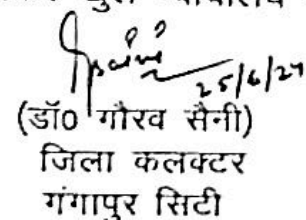 25/6/24
(डॉ० गौरव सैनी)
जिला कलक्टर
गंगापुर सिटी